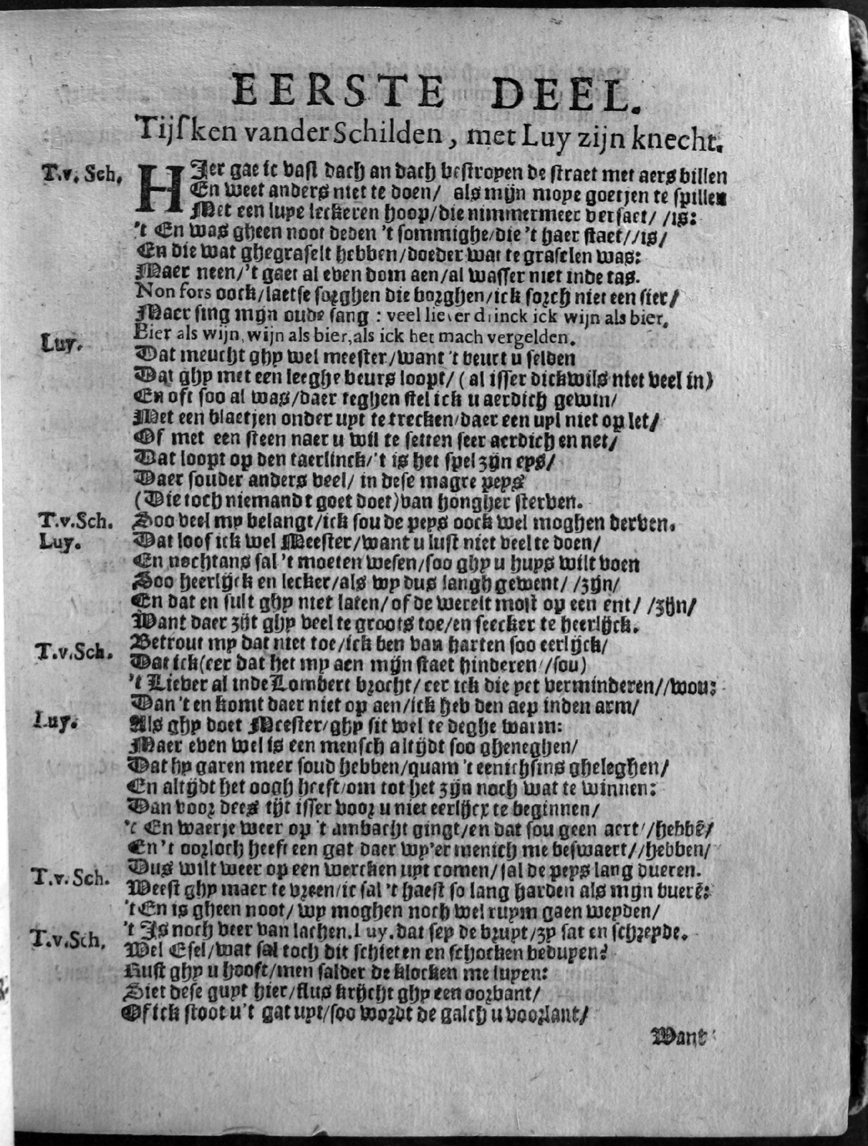 EERSTE DEEL.
Tijsken vander Schilden, met Luy zijn knecht.
T.v. Sch. HIer gae ic vast dach an dach bestropen de straet met aers billen
En weet anders niet te doen/ als mijn moye goetjen te spillen
Met een luye leckeren hoop/die nimmermeer versaet/ /is:
't En was gheen noot deden 't sommighe/die 't haer staet//is/
En die wat ghegraselt hebben/doeder wat te graselen was:
Maer neen/'t gaet al even dom aen/al wasser niet inde tas.
Non fors oock/laetse sorghen die borghen/ick sorch niet een sier/
Maer sing mijn oude sang : veel liever drinck ick wijn als bier,
Bier als wijn, wijn als bier, als ick het mach vergelden.
Luy. Dat meucht ghy wel meester/want 't beurt u selden
Dat ghy met een leeghe beurs loopt/ (al isser dickwils niet veel in)
En oft soo al was/daer teghen stel ick u aerdich gewin/
Met een blaetjen onder uyt te trecken/daer een uyl niet op let/
Of met een steen naer u wil te setten seer aerdich en net/
Dat loopt op den taerlinck/'t is het spel zijn eys/
Daer souder anders veel/ in dese magre peys
(Die toch niemandt goet doet) van hongher sterven.
T.v.Sch. Soo veel my belangt/ick sou de peys oock wel moghen derven.
Luy. Dat loof ick wel Meester/want u lust niet veel te doen/
En nochtans sal 't moeten wesen/soo ghy u huys wilt voen
Soo heerlijck en lecker/als wy dus langh gewent/ /zijn/
En dat en sult ghy niet laten/of de werelt most op een ent/ /zijn/
Want daer zijt ghy veel te groots toe/en seecker te heerlijck.
T.v.Sch. Betrout my dat niet toe/ick ben van harten soo eerlijck/
Dat ick(eer dat het my aen mijn staet hinderen//sou)
't Liever al inde Lombert brocht/eer ick die yet verminderen//wou:
Dan 't en komt daer niet op aen/ick heb den aep inden arm/
Luy. Als ghy doet Meester/ghy sit wel te deghe warm:
Maer even wel is een mensch altijdt soo gheneghen/
Dat hy garen meer soud hebben/quam 't eenichsins gheleghen/
En altijdt het oogh heeft/om tot het zijn noch wat te winnen:
Dan voor dees tijt isser voor u niet eerlijcx te beginnen/
't En waerje weer op 't ambacht gingt/en dat sou geen aert//hebbē/
En 't oorloch heeft een gat daer wy'er menich me beswaert//hebben/
Dus wilt weer op een wercken uyt comen/sal de peys lang dueren.
T.v. Sch. Weest ghy maer te vreen/ic sal 't haest so lang harden als mijn buerē:
't En is gheen noot/ wy moghen noch wel ruym gaen weyden/
't Is noch veer van lachen. Luy. dat sey de bruyt/zy sat en schreyde.
T.v.Sch. Wel Esel/wat sal toch dit schieten en schocken beduyen?
Rust ghy u hooft/men salder de klocken me luyen:
Siet dese guyt hier/flus krijcht ghy een oorbant/
Of ick stoot u 't gat uyt/soo wordt de galch u voorlant/
Want